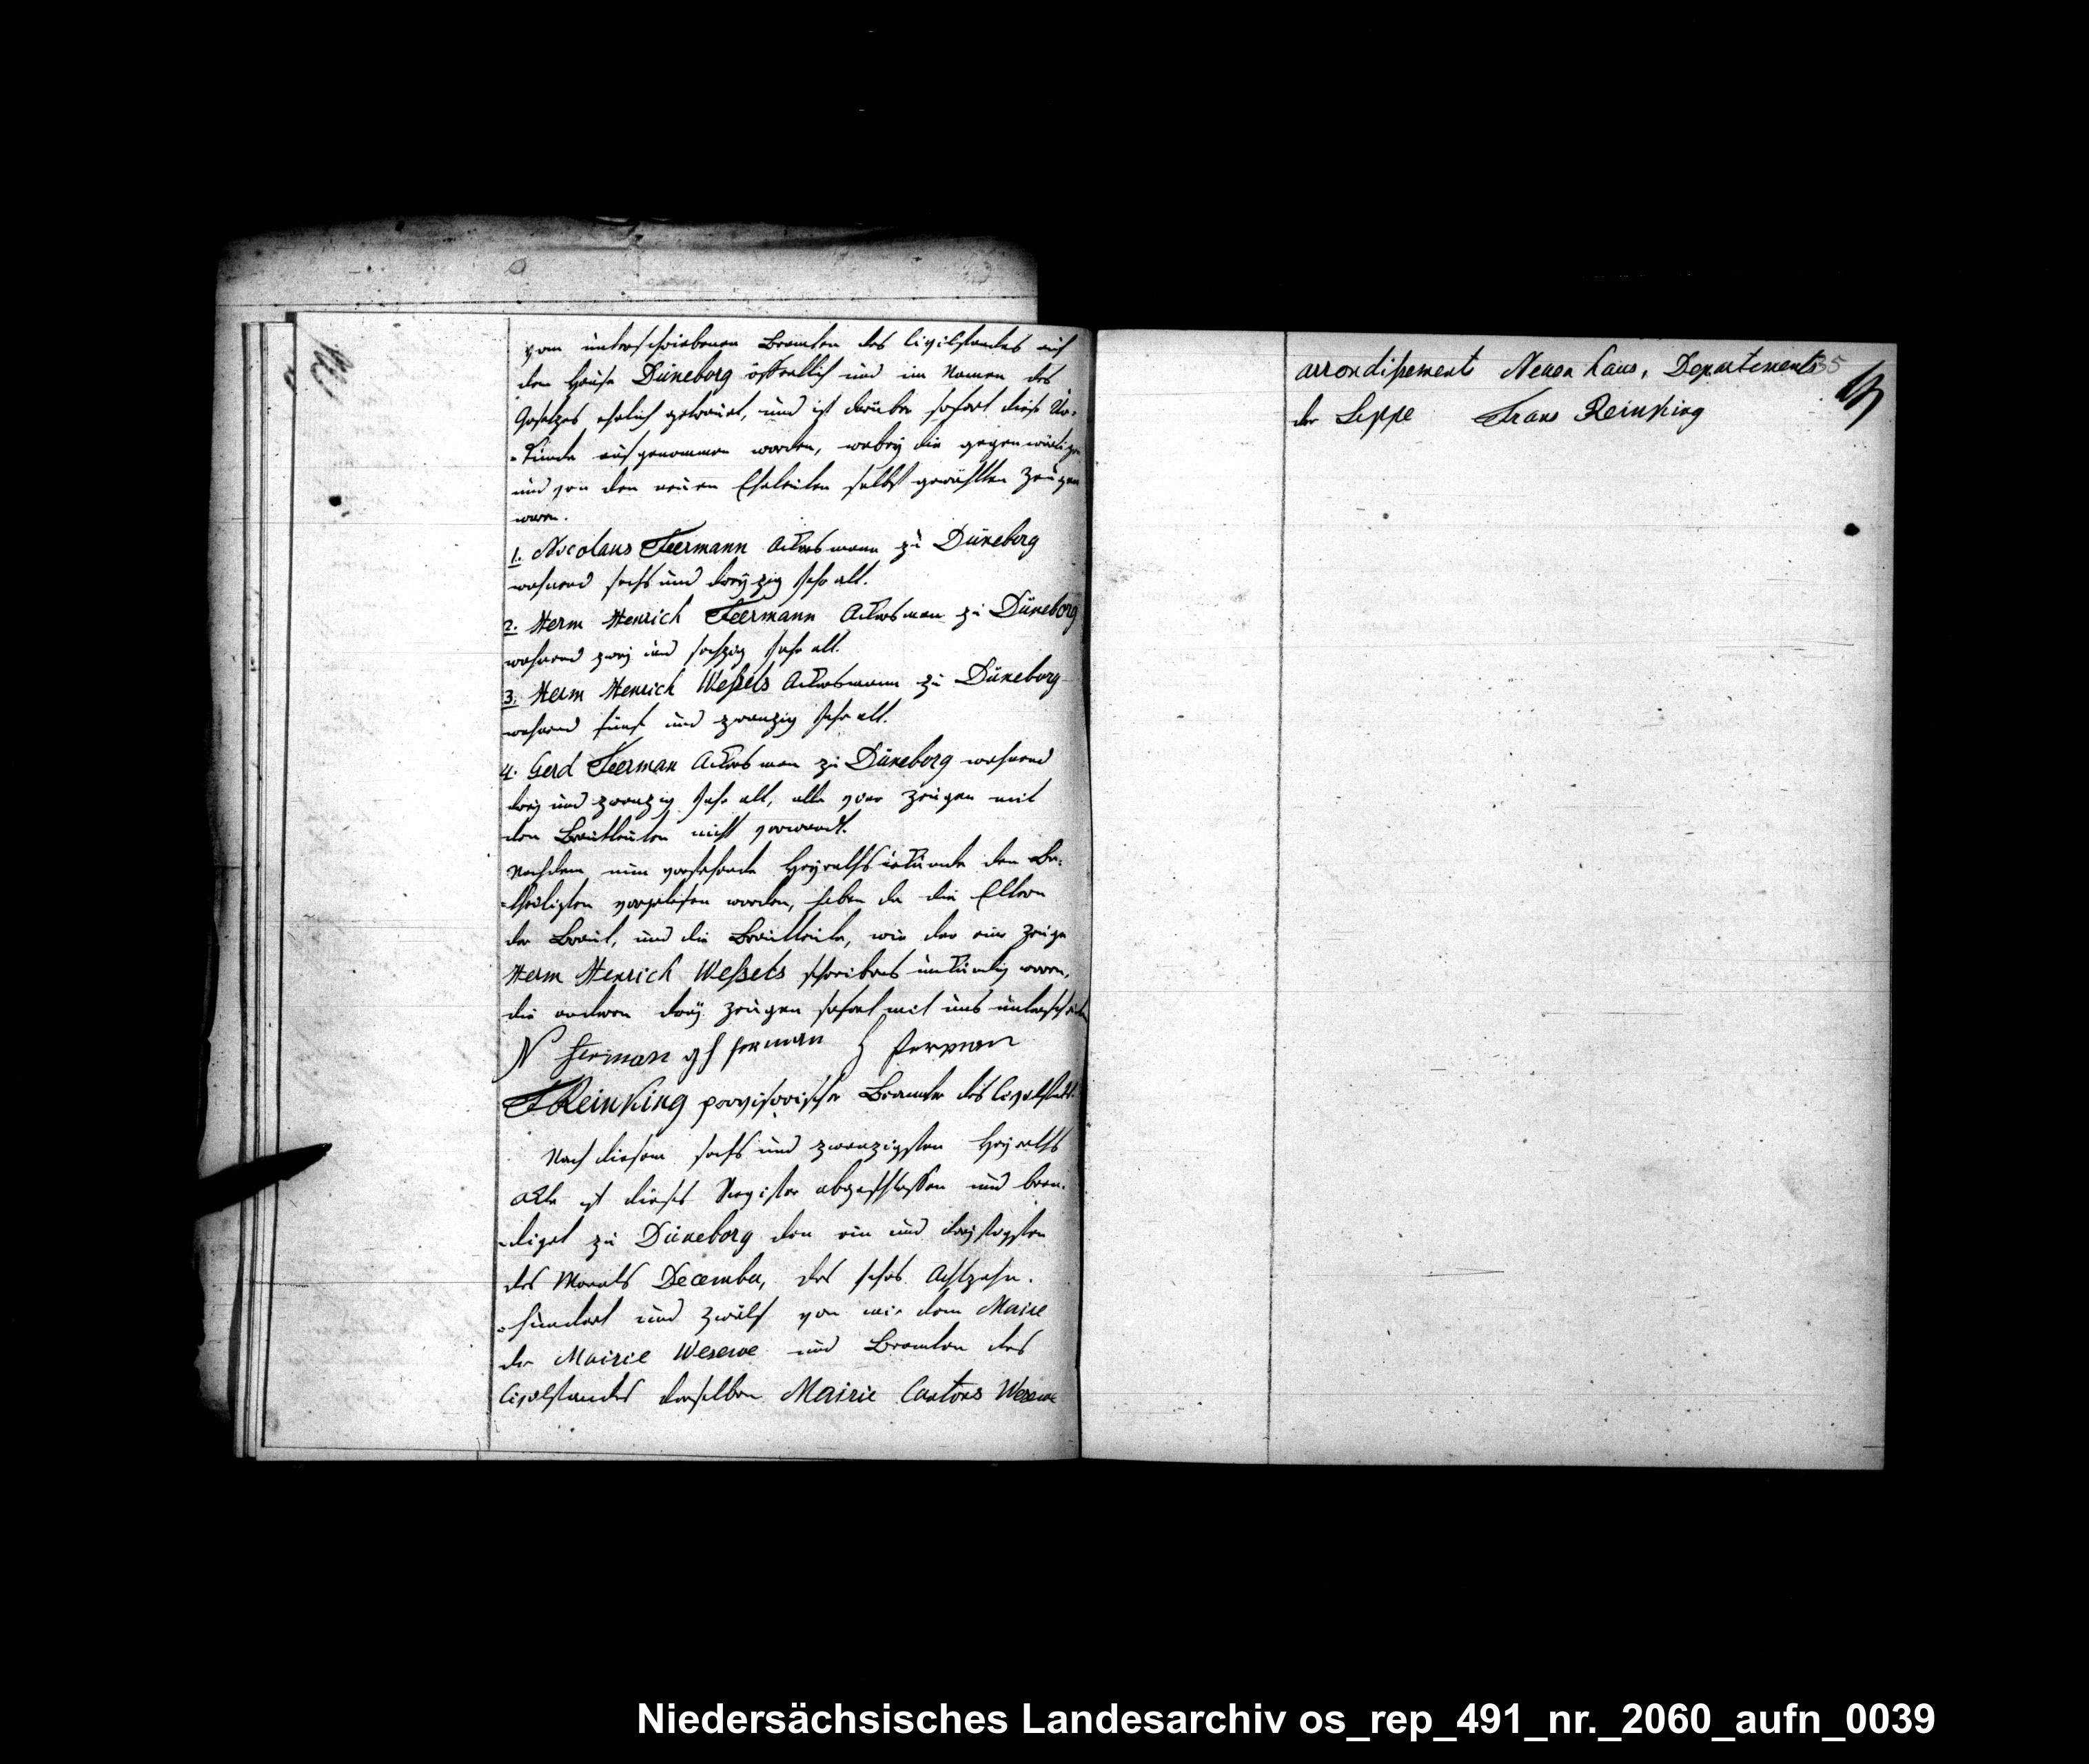 vom unterschriebenen Beamten des Civilstandes auf
dem Hause Düneborg öffentlich und im Namen des
Gesetzes ehelich getrauet, und ist darüber sofort diese Ur-
-kunde aufgenommen worden, wobey die gegenwärtigen
und von den neuen Eheleuten selbst gewählten Zeugen
waren.
1. Nicolaus Feermann Ackersmann zu Düneborg
wohnend sechs und dreyzig Jahr alt.
2. Herm Henrich Feermann Ackersman zu Düneborg
wohnend zwey und sechzig Jahr alt.
3. Herm Henrich Weßels Ackersmann zu Düneborg
wohnend fünf und zwanzig Jahr alt.
4. Gerd Feerman Ackersman zu Düneborg wohnend
drey und zwanzig Jahr alt, alle vier Zeugen mit
den Brautleuten nicht verwandt.
Nachdem nun vorstehende Heyraths urkunde den Be-
-theiligten vorgelesen worden, haben da die Eltern
der Braut, und die Brautleute, wie der eine Zeuge
Herm Henrich Weßels schreibens unkundig waren,
die andern drey Zeugen sofort mit uns unterschrieben
N ferman g h ferman H ferman
F Reinking provisorischer Beamter des Civilstads.
Nach diesem sechs und zwanzigsten Heyraths
Akte ist dieses Register abgeschlossen und been-
-diget zu Düneborg den ein und dreysigsten
des Monats December, des Jahrs Achtzehn-
-hundert und zwölf von mir dem Maire
der Mairie Wesewe und Beamten des
Civilstandes derselben Mairie Cantons Wesewe
arrondißement Neuen haus, Departements
der Lippe Frans Reinking
35
Niedersächsisches Landesarchiv os_rep_491_nr._2060_aufn_0039